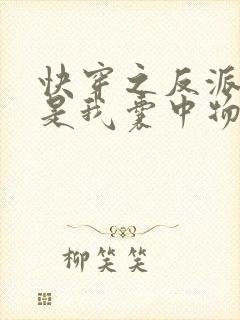 快穿之反派
是我囊中物
柳笑笑